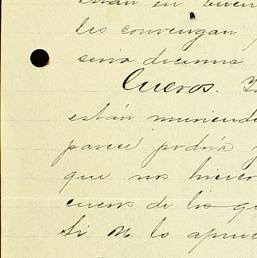 están en buen
les convengan
sería decirnos
Cueros.
están muriendo
parece podría
que nos hicier
cueros de los que
Si M. lo aprue